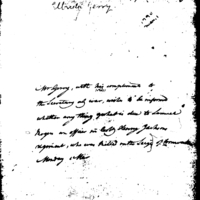 Elbridge Gerry
Mr Gerry, with his compliments to
the Secretary of war, wishes to be informed
whether any thing, & what is due to Samuel
Rogers an officer in Colo Henry Jacksons
regiment, who was killed on the
Monday